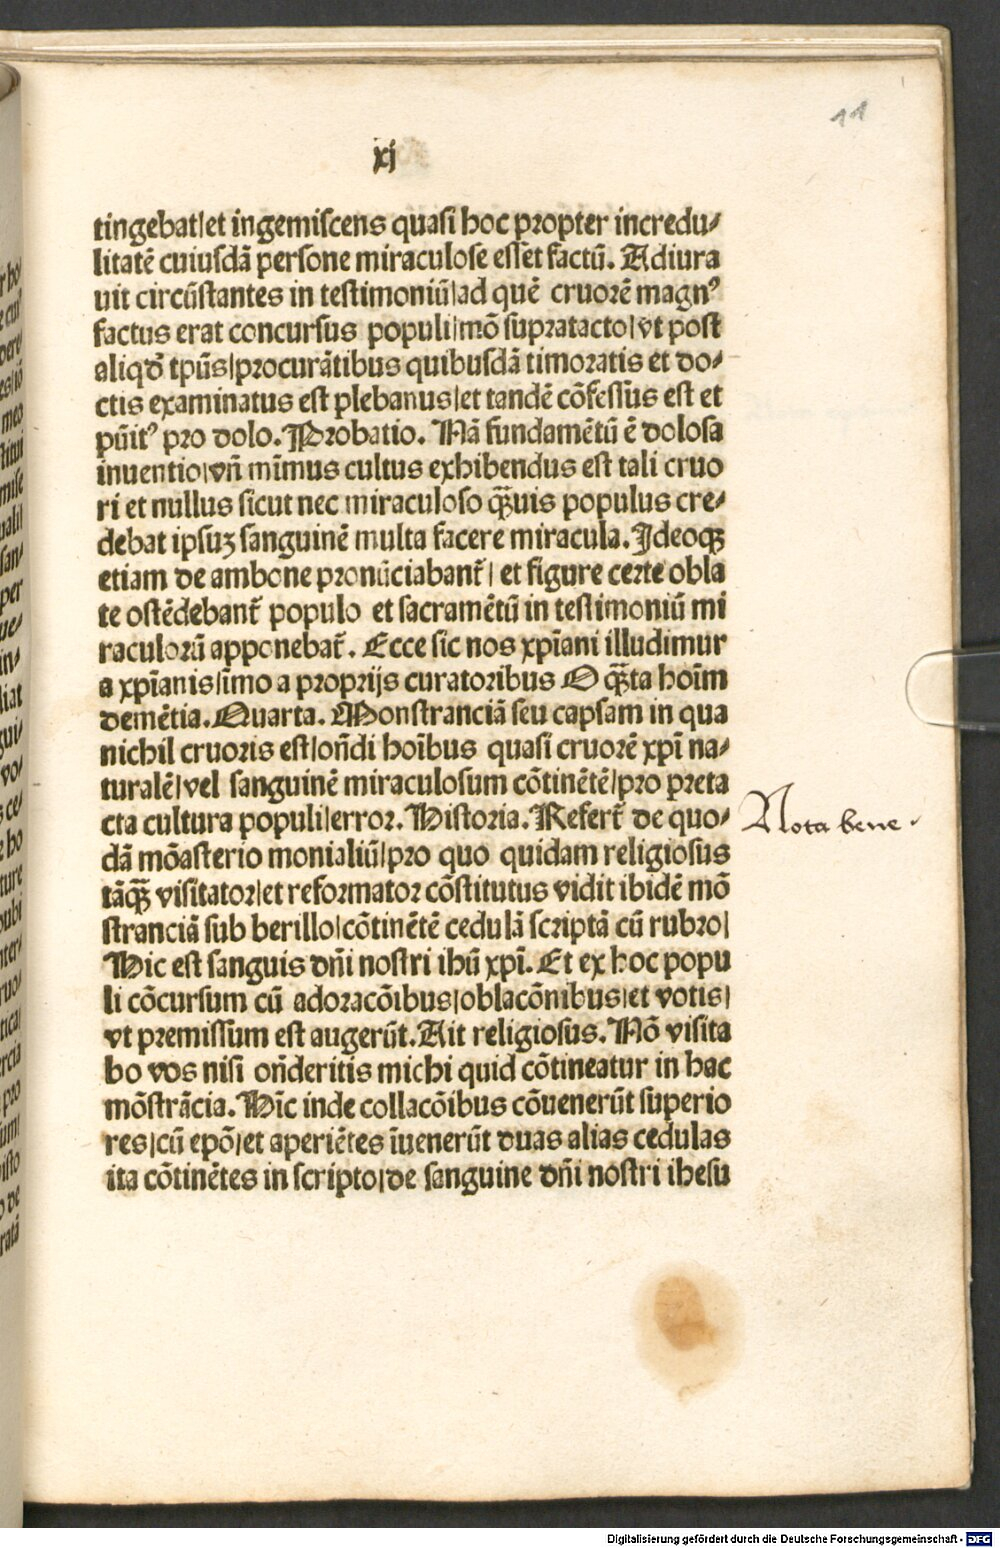 11
xj
tingebat/et ingemiscens quasi hoc propter incredu/
litatē cuiusdā persone miraculose esset factū. Adiura
uit circūstantes in testimoniū/ad quē cruorē magnꝰ
factus erat concursus populi/mō supratacto/vt post
aliqd̓ tpūs/procurātibus quibusdā timoratis et do/
ctis examinatus est plebanus/et tandē cōfessus est et
pūitꝰ pro dolo. Probatio. Nā fundamētū ē dolosa
inuentio/vñ mīmus cultus exhibendus est tali cruo
ri et nullus sicut nec miraculoso qꝫuis populus cre/
debat ipsuꝫ sanguinē multa facere miracula. Ideoqꝫ
etiam de ambone pronūciabant̄/ et figure certe obla
te ostēdebant̄ populo et sacramētū in testimoniū mi
raculorū apponebat̄. Ecce sic nos xp̄iani illudimur
a xp̄ianis/īmo a proprijs curatoribus O qꝫta hoīm
demētia. Quarta. Monstranciā seu capsam in qua
nichil cruoris est/oñdi hoībus quasi cruorē xp̄i na/
turalē/vel sanguinē miraculosum cōtinētē/pro preta
cta cultura populi/error. Historia. Refert̄ de quo/
dā mōasterio monialiū/pro quo quidam religiosus
tāqꝫ visitator/et reformator cōstitutus vidit ibidē mō
stranciā sub berillo/cōtinētē cedulā scriptā cū rubro/
Hic est sanguis dñi nostri ihū xp̄i. Et ex hoc popu
li cōcursum cū adoracōibus/oblacōnibus/et votis/
vt premissum est augerūt. Ait religiosus. Nō visita
bo vos nisi oñderitis michi quid cōtineatur in hac
mōstrācia. Hīc inde collacōibus cōuenerūt superio
res/cū epō/et aperiētes īuenerūt duas alias cedulas
ita cōtinētes in scripto/de sanguine dñi nostri ihesu
Nota bene.
Digitalisierung gefördert durch die Deutsche Forschungsgemeinschaft - DFG